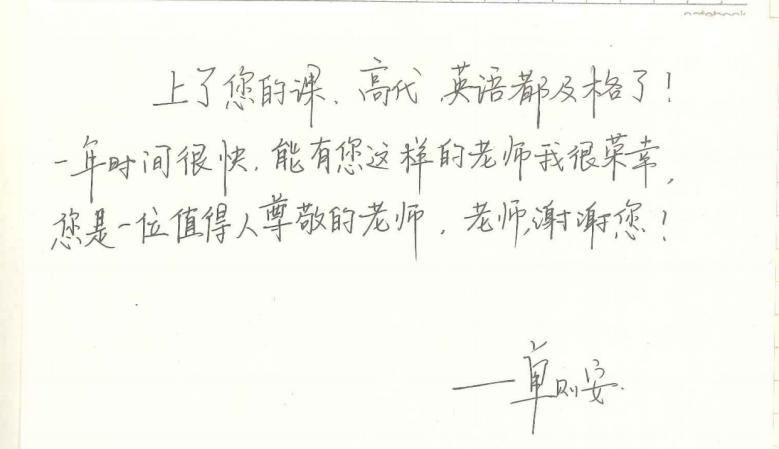 上了您的课、高代、英语都及格了！
一年时间很快，能有您这样的老师我很荣幸，
您是一位值得人尊敬的老师，老师，谢谢您！
——卓则安